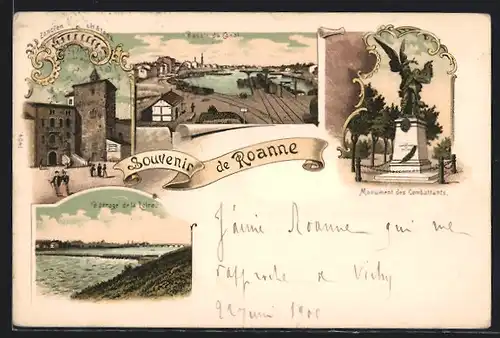 Ancien Château
Bassin du Canal
Souvenir de Roanne
Monument des Combattants.
Barrage de la Loire
J'aime Roanne qui me
rapproche de Vichy
22 juin 1900